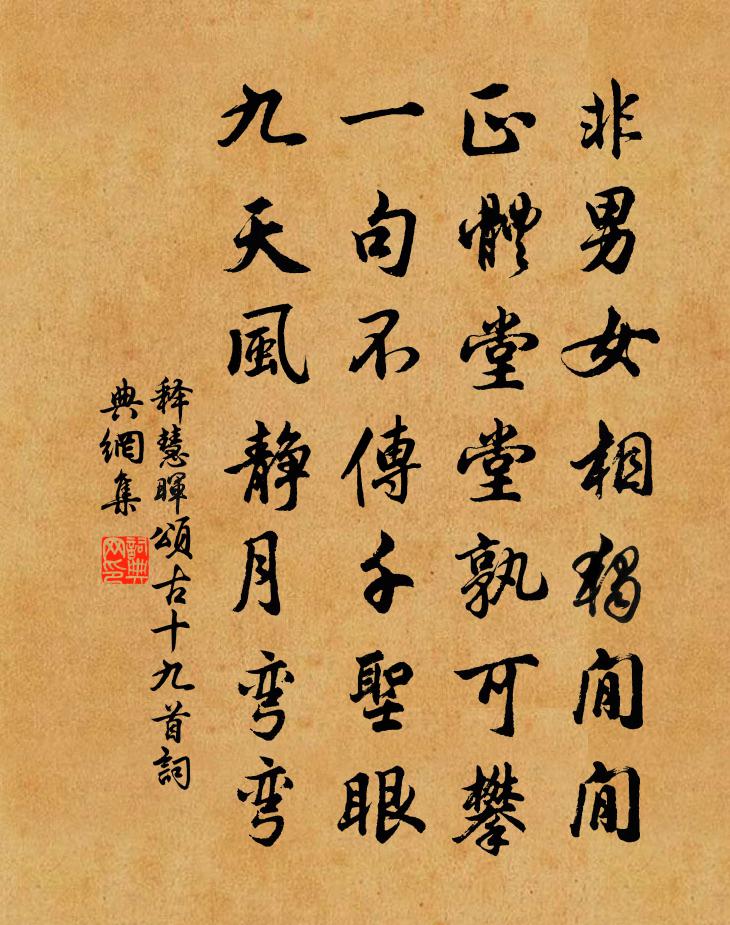 非男女相獨閒閒
正體堂堂孰可攀
一句不傳千聖眼
九天風靜月彎彎
释慧暉頌古十九首詞
典網集
詞典
网印